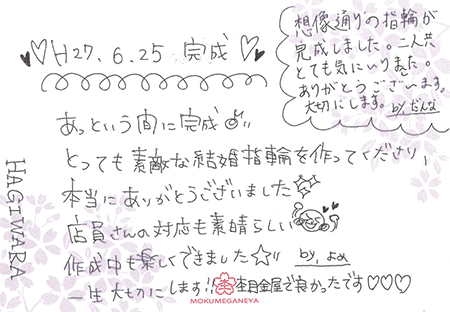 H27.6.25 完成
想像通りの指輪が
完成しました。二人共
とても気にいりました。
ありがとうございます。
大切にします。by だんな
あっという間に完成!!
とっても素敵な結婚指輪を作ってくださり、
本当にありがとうございました☆
店員さんの対応も素晴らしい
作成中も楽しくできました☆!! by, よめ
一生大切にします!! 杢目金屋で良かったです♡♡♡
HAGIWARA
MOKUMEGANEYA